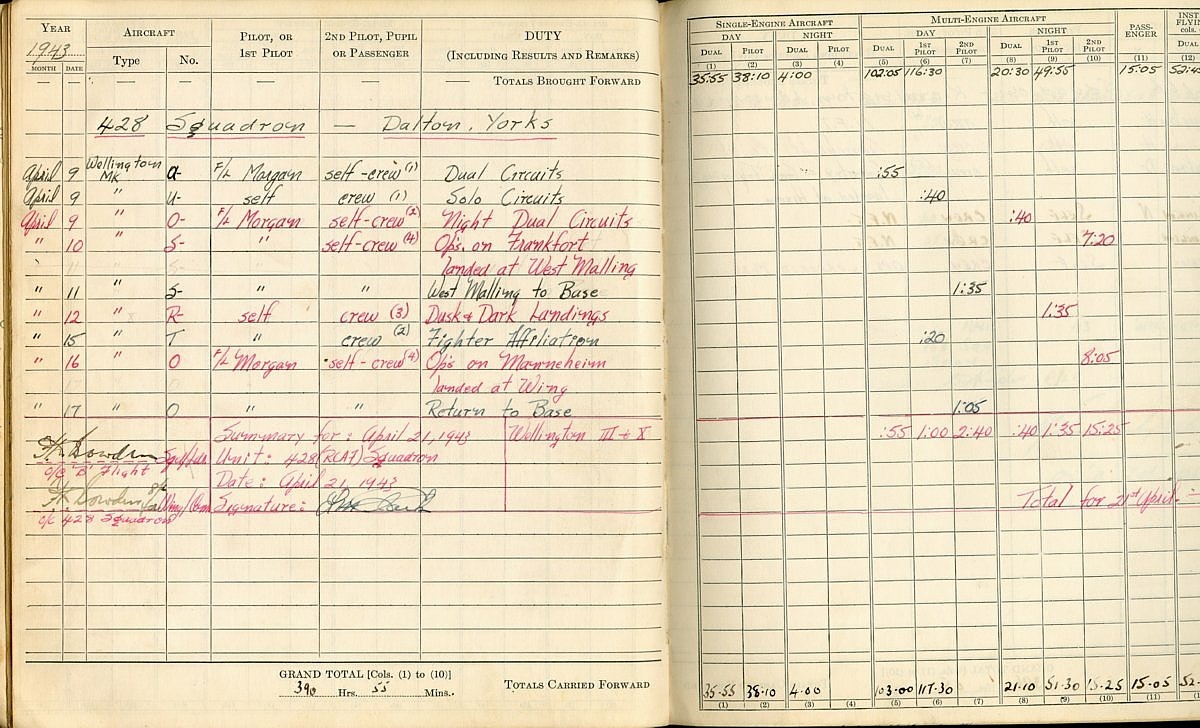 YEAR AIRCRAFT PILOT, OR 1ST PILOT 2ND PILOT, PUPIL OR PASSENGER DUTY (INCLUDING RESULTS AND REMARKS) SINGLE-ENGINE AIRCRAFT MULTI-ENGINE AIRCRAFT PASS-ENGER INST FLYIN cols.
1943 DAY NIGHT DAY NIGHT
MONTH DATE Type No. DUAL PILOT DUAL PILOT DUAL 1ST PILOT 2ND PILOT DUAL 1ST PILOT 2ND PILOT Dual
(1) (2) (3) (4) (5) (6) (7) (8) (9) (10) (11) (12)
— — — — — — — TOTALS BROUGHT FORWARD 35:55 38:10 4:00 102:05 116:30 20:30 49:55 15:05 52:4
428 Squadron — Dalton, Yorks
April 9 Wellington MK a- F/L Morgan self-crew (1) Dual Circuits :55
April 9 " U- self crew (1) Solo Circuits :40
April 9 " O- F/L Morgan self-crew (2) Night Dual Circuits :40
" 10 " S- " self-crew (4) Ops. on Frankfort 7:20
landed at West Malling
" 11 " S- " " West Malling to Base 1:35
" 12 " R- self crew (3) Dusk & Dark Landings 1:35
" 15 " T " crew (2) Fighter Affiliation :20
" 16 " O F/L Morgan self-crew (4) Ops on Manneheim 8:05
landed at Wing
" 17 " O " " Return to Base 1:05
Summary for: April 21, 1943 Wellington III + X :55 1:00 2:40 :40 1:35 15:25
Bowden Sqd/Ldr. Unit: 428 (RCAF) Squadron
o/c 'B' Flight
Date: April 21, 1943
Bowden Wing/Com Signature: Total for 21st April =
o/c 428 Squadron
GRAND TOTAL [Cols. (1) to (10)]
390 Hrs. 55 Mins. TOTALS CARRIED FORWARD 35-55 38-10 4-00 103-00 117-30 21-10 51-30 15-25 15-05 52-
(1) (2) (3) (4) (5) (6) (7) (8) (9) (10) (11) (1